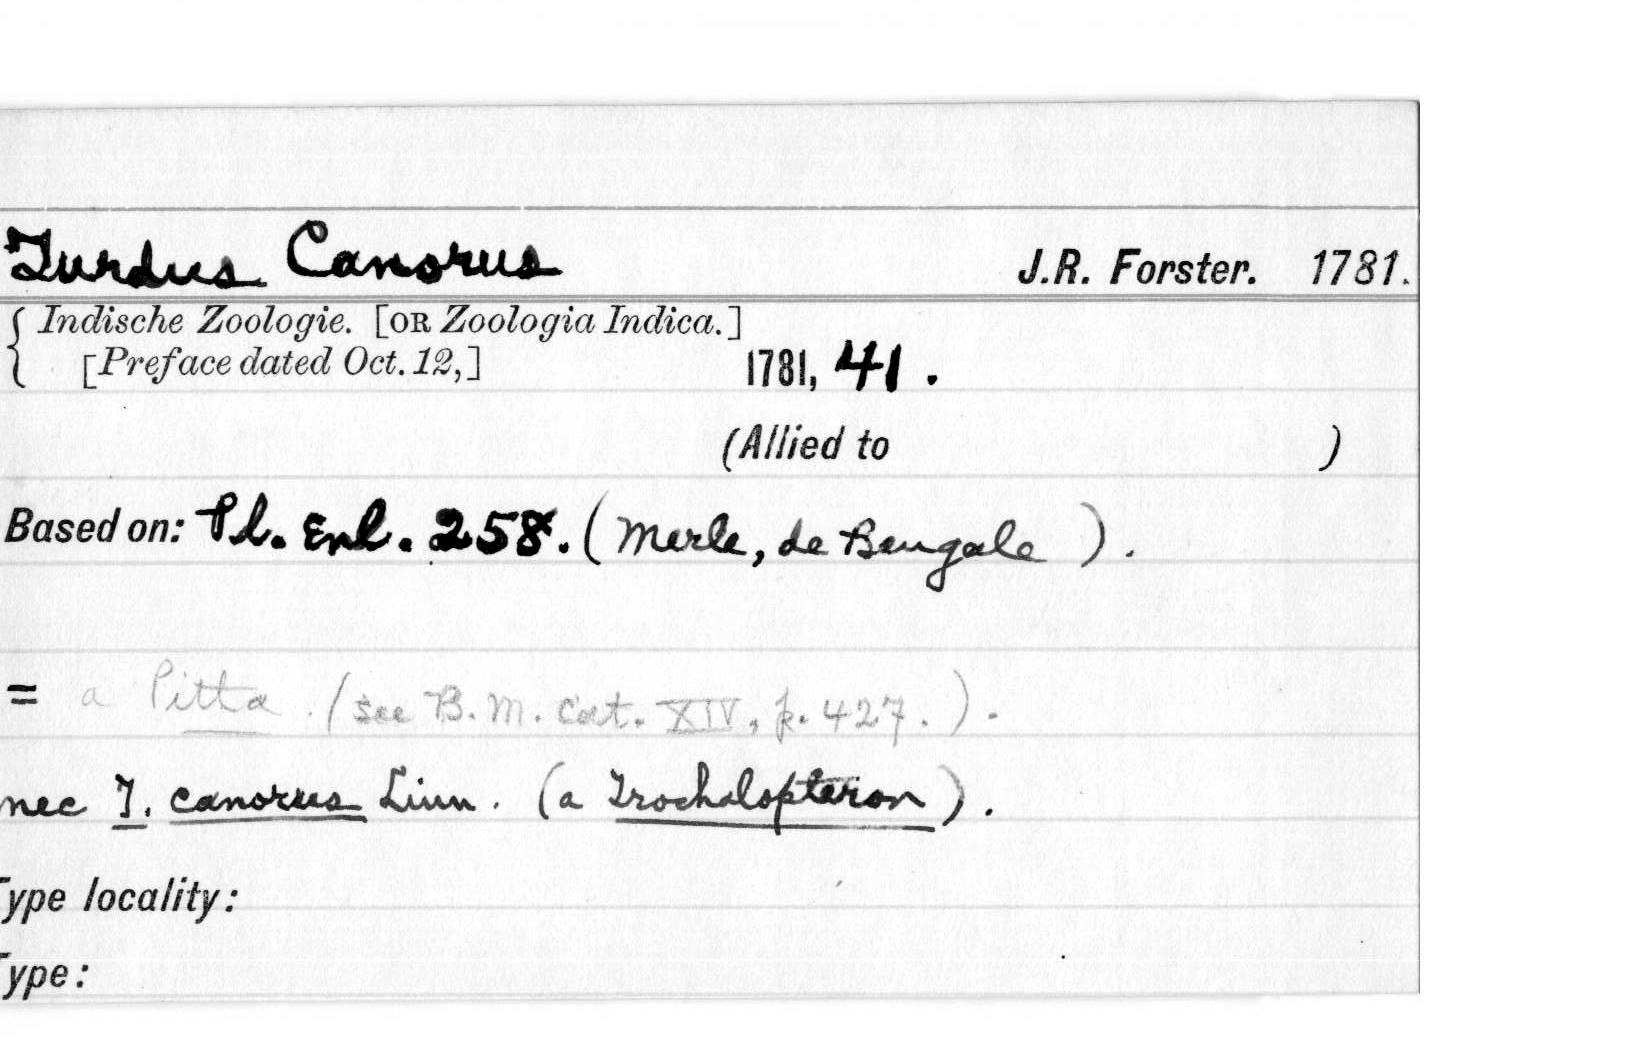 Turdus Canorus J.R. Forster. 1781.
{ Indische Zoologie. [OR Zoologia Indica.]
[Preface dated Oct. 12,] 1781, 41.
(Allied to )
Based on: Pl. Enl. 258. (Merle, de Bengale).
= a Pitta. (see B.M. Cat. XIV, p. 427.).
nec T. canorus Linn. (a Trochalopteron).
Type locality:
Type: